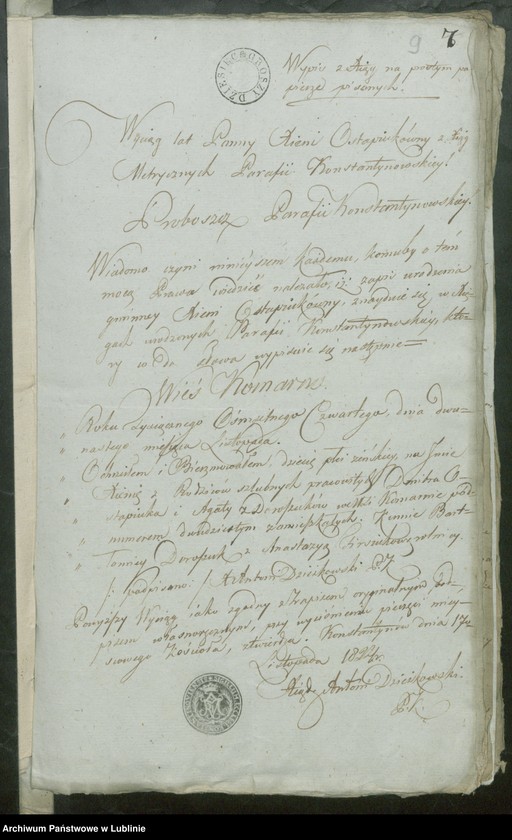 9 7
DZIESIĘĆ GROSZY
Wypis z Xiąg na prostym pa
pierze pisanych.
Wyciąg lat Panny Xieni Ostapiukówny z Xiąg
Metrycznych Parafii Konstantynowskiey!
Proboszcz Parafii Konstantynowskiey.
Wiadomo czyni ninieyszem każdemu, komuby o tem
mocą Prawa wiedzieć należało, iż zapis urodzenia
Xieni Ostapiukówny, znayduie się w Xię-
gach urodzonych Parafii Konstantynowskiey, któ-
ry co do słowa wypisuie się następnie =
Wieś Komarne
Roku tysiącznego Ośmsetnego Czwartego, dnia dwu-
nastego miesiąca Listopada.
Ochrzciłem i Bierzmowałem dziecię płci żeńskiey, na Imie
Xienia z Rodziców szlubnych pracowitych Dmitra O-
stapiuka i Agaty z Doropiuków we Wsi Komarnie pod
numerem dwudziestym zamieszkałych. Kumie Bart-
łomiey Doropiuk z Anastazyą rolnicy.
/: podpisano: / X Antoni Dziczkowski P. K.
Powyższy Wyciąg iako zgodny z Zapisem oryginalnym pod-
pisem własnoręcznym, przy wyciśnieniu pieczęci miey-
scowego Kościoła, stwierdza. Konstantynów dnia 17
Listopada 1824 r.
Xiądz Antoni Dziczkowski
P. K.
Archiwum Państwowe w Lublinie